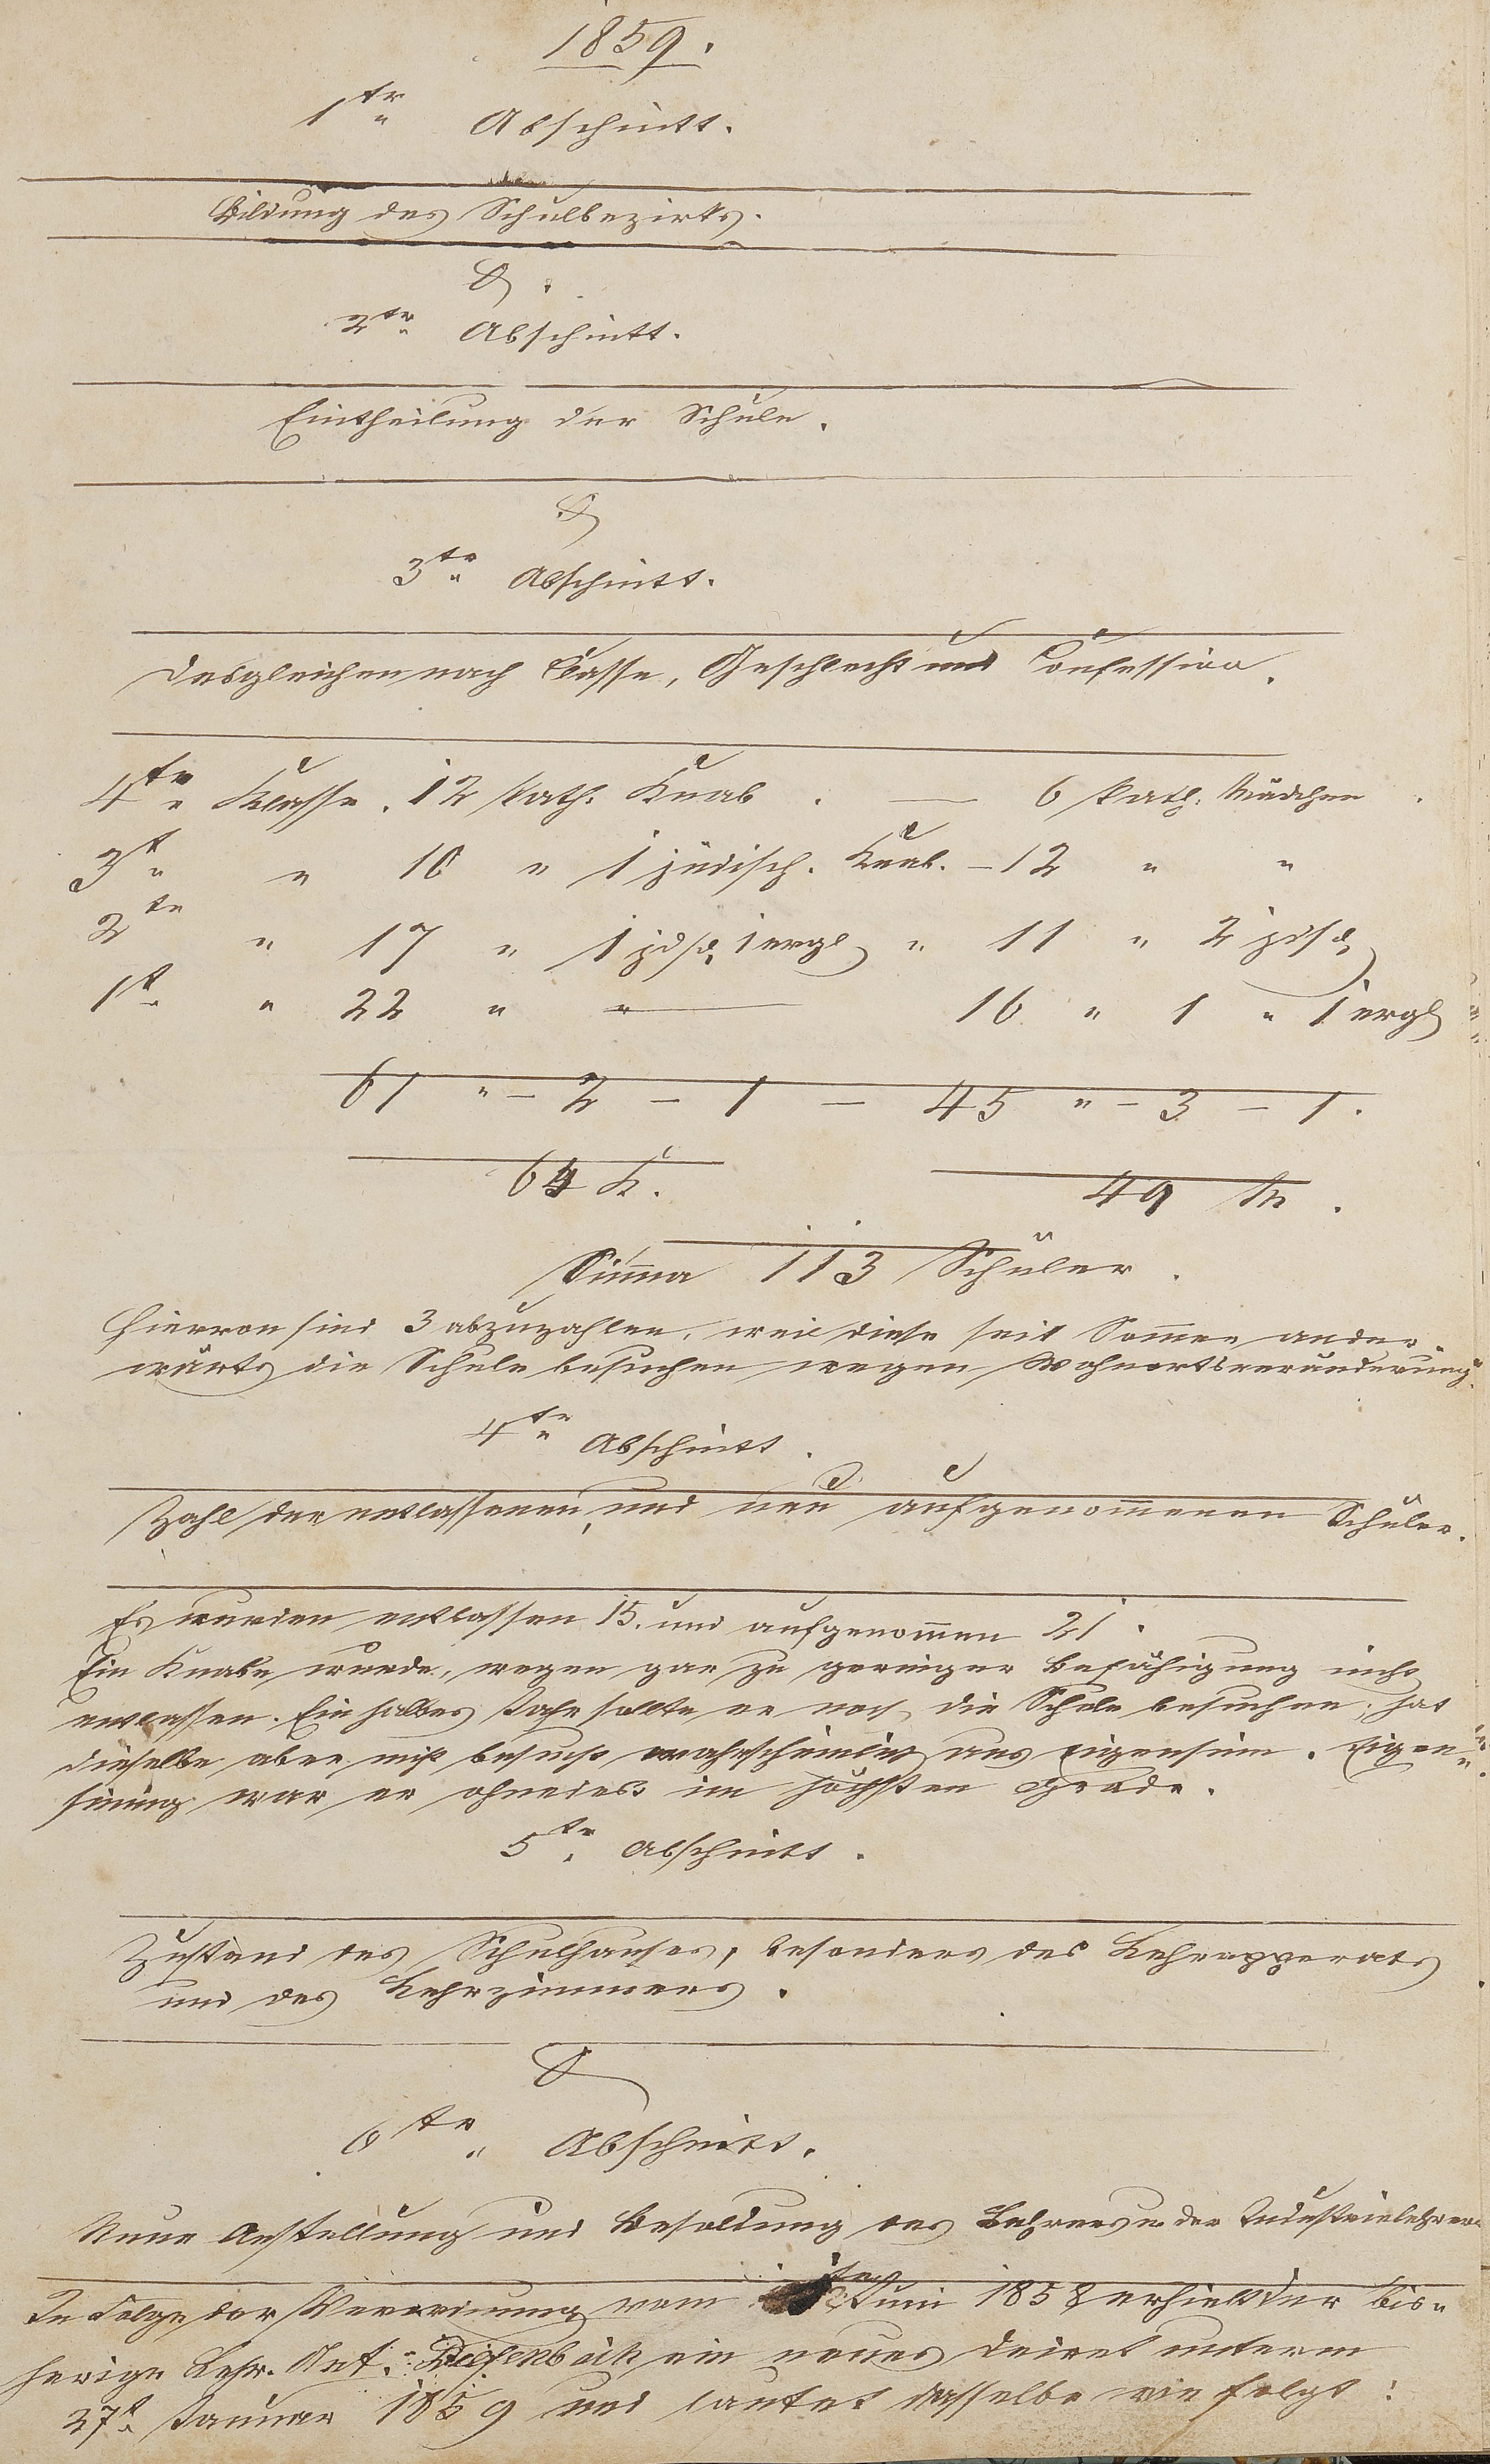 1859.
1ter Abschnitt.
Bildung des Schulbezirks.
2ter Abschnitt.
Eintheilung der Schule.
3ter Abschnitt.
Desgleichen nach Classe, Geschlecht und Confession.
4te Klasse. 12 kath. Knab. — 6 kath. Mädchen.
3t " " 10 " 1 jüdisch. Knab. - 12 " "
2te " 17 " 1 jdsch 1 ergl " 11 " 2 jdsch
1t " 22 " " — 16 " 1 " 1 ergl
61 " - 2 - 1 - 45 " - 3 - 1.
64 K. 49 M.
Suma 113 Schüler.
Hiervon sind 3 abzuzahlen, weil diese seit Somer ander-
wärts die Schule besuchen wegen Wohnortsveränderung.
4ter Abschnitt.
Zahl der entlassenen und neu aufgenomenen Schüler.
Es wurden entlassen 15. und aufgenomen 21.
Ein Knabe wurde, wegen gar zu geringer Befähigung nicht
entlassen. Ein halbes Jahr sollte er noch die Schule besuchen; hat
dieselbe aber nicht besucht wahrscheinlich aus Eigensinn. Eigen-
sinnig war er ohnedies im höchsten Grade.
5ter Abschnitt.
Zustand des Schulhauses, besonders des Lehrapperats
und des Lehrzimmers.
6ter Abschnitt.
Neue Anstellung und Besoldung des Lehrers u. der Industrielehrer
In Folge der Verordnung vom Juni 1858 erhielt der bis-
herige Lehr. Ant. Diefenbach ein neues Decret unterm
27t. Januar 1859 und lautet dasselbe wie folgt: